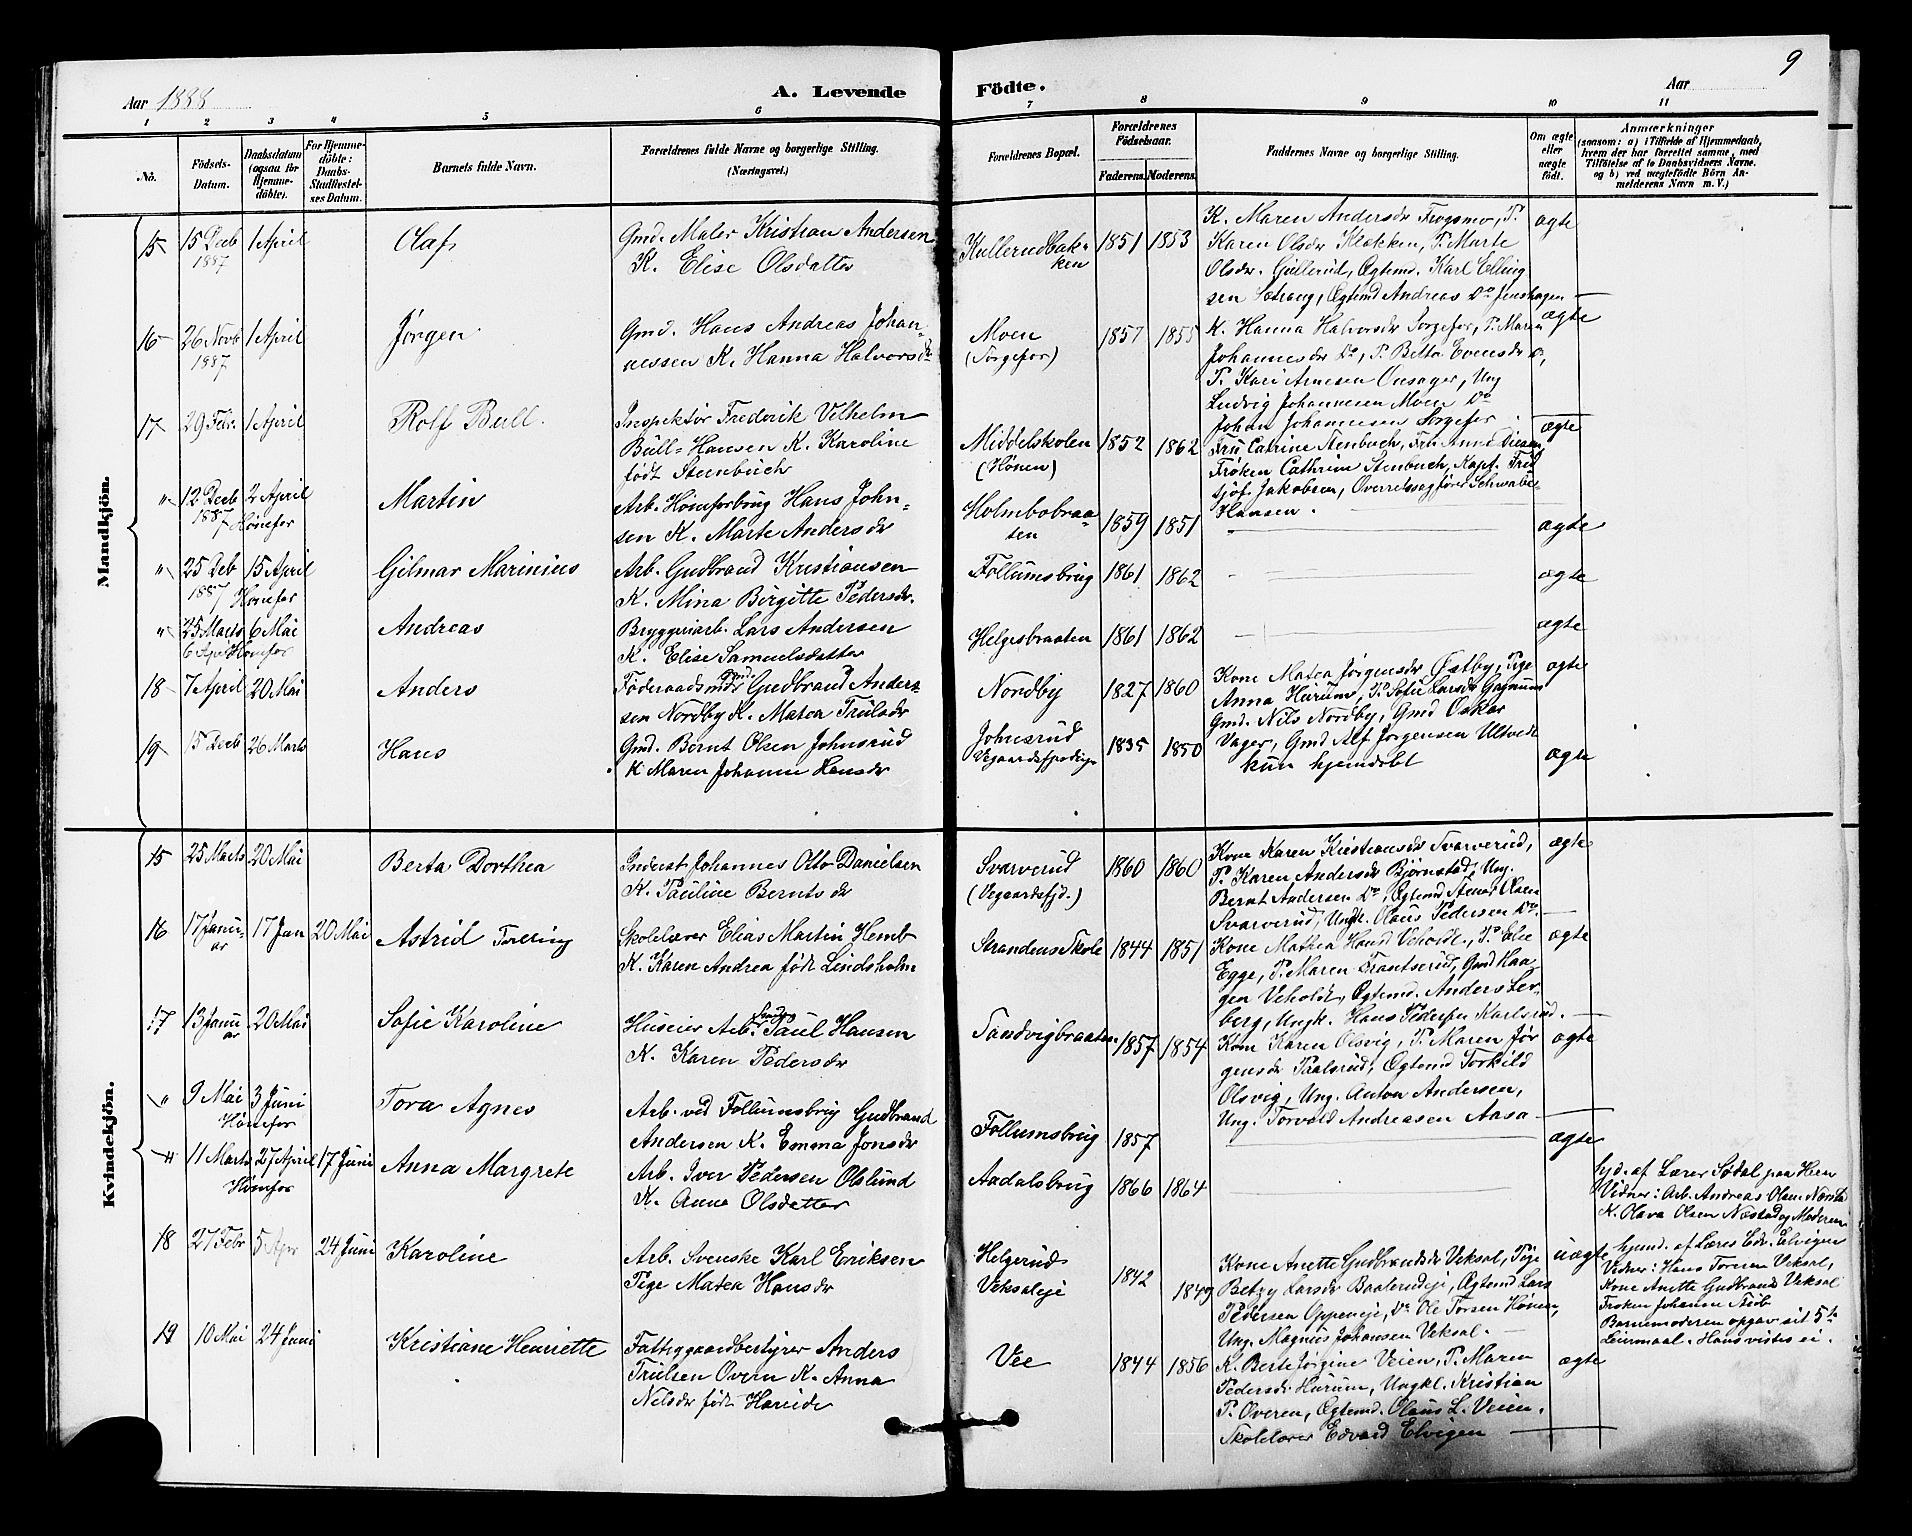 9
Aar 1888
A. Levende Födte.
Aar
1 2 3 4 5 6 7 8 9 10 11
No.
Födsels-Datum.
Daabsdatum (ogsaa for Hjemmedöbte).
For Hjemmedöbte: Daabs-Stadfæstelses Datum.
Barnets fulde Navn.
Forældrenes fulde Navne og borgerlige Stilling.
(Næringsvei.)
Forældrenes Bopæl.
Forældrenes Födselsaar.
Faderens. Moderens.
Faddernes Navne og borgerlige Stilling.
Om ægte eller uægte födt.
Anmærkninger
(saasom: a) i Tilfælde af Hjemmedaab, hvem der har forrettet samme, med Tilföielse af to Daabsvidners Navne. og b) ved uægtefödte Börn Anmelderens Navn m. V.)
Mandkjön.
15 15 Decb 1887 1 April Olaf
Gmd. Maler Kristian Andersen
K. Elise Olsdatter
Kullerudbakken 1851 1853
K. Maren Andersdr Frogsmo, P.
Karen Olsdr Klækken, P. Marte
Olsdr. Gullerud, Ægtemd. Karl Elling
sen Sætrang, Ægtemd Andreas Do Jenshagen
ægte
16 26 Novb 1887 1 April Jörgen
Gmd. Hans Andreas Johan-
nessen K. Hanna Halvorsdr
Moen 1857 1855
(Sørgefos)
K. Hanna Halvorsdr Sørgefos, P. Maren
Johannesdr Do, P. Belta Evensdr Do,
P. Kari Arnesen Onsager, Ung
Ludvig Johannesen Moen Do
Johan Johannesen Sørgefos
ægte
17 29 Febr. 1 April Rolf Bull.
Inspektör Frederik Vilhelm
Bull-Hansen K. Karoline
født Stenbuch
Middelskolen 1852 1862
(Hønen)
Fru Catrine Stenbuch, Fru Anna Diesen
Frøken Cathrine Stenbuch, Kapt. Frit
sjof. Jakobsen, Overretssagfører Schwabe-
Hansen.
ægte
" 12 Decb 1887 2 April Hønefos Martin
Arb. Hönefosbrug Hans John-
sen K. Marte Andersdr
Holmbobraa-
ten 1859 1851 ægte
" 25 Deb 1887 15 April Hønefos Gilmar Marinius
Arb. Gudbrand Kristiansen
K. Mina Birgitte Pedersdr.
Follumsbrug 1861 1862 ægte
" 25 Marts 6 Mai Hønefos Andreas
Bryggeriarb. Lars Andersen
K. Elise Samuelsdatter
Helgesbraaten 1861 1862 ægte
18 7 April 20 Mai Anders
Föderaadsmd Gudbrand Ander-
sen Nordby K. Matea Trulsdr
Nordby 1827 1860
Kone Matea Jørgensdr Østby, Pige
Anna Hurum, P. Sofie Larsdr Gagnum
Gmd. Nils Nordby, Gmd Oskar
Vager, Gmd Alf Jørgensen Ultvedt
ægte
19 15 Decb 26 Marts Hans
Gmd. Bernt Olsen Johnsrud
K Maren Johanne Hansdr
Johnsrud
Vegaardsfjerding 1835 1850
kun hjemdøbt
ægte
Kvindekjön.
15 25 Marts 20 Mai Berta Dorthea
Inderst Johannes Otto Danielsen
K. Pauline Berntsdr
Svarverud 1860 1860
(Vegaardsfjd.)
Kone Karen Kristiansdr Svarverud,
P. Karen Andersdr Bjørnstad, Ung.
Bernt Andersen Do, Ægtemd Olsen
Svarverud, Ungk. Olaus Pedersen Do.
ægte
16 17 Janu-ar 17 Jan 20 Mai Astrid
Skolelærer Elias Martin Hemb
K. Karen Andrea født Lindsholm
Strandens Skole 1844 1851
Kone Mathea Veholdt, P. Elie
Egge, P. Maren Trantserud, Gmd Haa-
gen Veholdt, Ægtemd. Anders Ler-
berg, Ungk. Hans Pedersen Karlsrud.
ægte
17 13 Janu-ar 20 Mai Sofie Karoline
Huseier Arb. Paul Hansen
K. Karen Pedersdr
Sandvigbraaten 1857 1854
Kone Karen Olsvig, P. Maren Jør
gensdr Paalsrud, Ægtemd Torkild
Olsvig, Ung. Anton Andersen,
Ung. Torvald Andreasen Aasa
ægte
" 9 Mai 3 Juni Hønefos Tora Agnes
Arb. ved Follumsbrug Gudbrand
Andersen K. Emma Jonsdr
Follumsbrug 1857 ægte
" 11 Marts 27 April Hønefos 17 Juni Anna Margrete
Arb. Iver Pedersen Olslund
K. Anna Olsdatter
Aadalsbrug 1866 1864
hjd. af Lærer Sødal paa Hven
Vidner: Arb. Andreas Olsen Næstad
K. Olava Olsen Næstad og Moderen
18 27 Febr 5 Apr 24 Juni Karoline
Arb. Svenske Karl Eriksen
Pige Matea Hansdr
Helgerud
Veksaleje 1842 1849
Kone Anette Gudbrandsdr Veksal, Pige
Betzy Larsdr Baalerudeje, Ægtemd Lars
Pedersen Oppeneje, Do Ole Torsen Hønen,
Ung. Magnus Johansen Veksal.
uægte
hjemd. af Lærer Edv. Elvigen
Vidner: Hans Torsen Veksal,
Kone Anette Gudbrands Veksal
Frøken Johanne
Barnemoderen opgav sit 5te
Leiermaal. Hans vistes ei.
19 10 Mai 24 Juni Kristiane Henriette
Fattiggaardbestyrer Anders
Trulsen Overn K. Anna
Nelsdr født Hareide
Vee 1844 1856
K. Berte Jørgine Veien, P. Maren
Pedersdr Hurum, Ungkl. Kristian
P. Overen, Ægtemd. Olaus L. Veien.
Skolelærer Edvard Elvigen
ægte